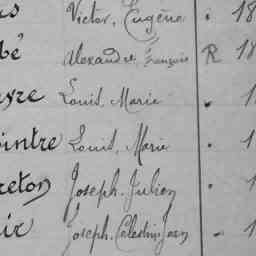 us Victor, Eugène . 18
bé Alexandre, François R 18
yre Louis, Marie . 1
ointre Louis, Marie . 1
reton Joseph, Julien . 1
ir Joseph, Célestin, Jean - 1